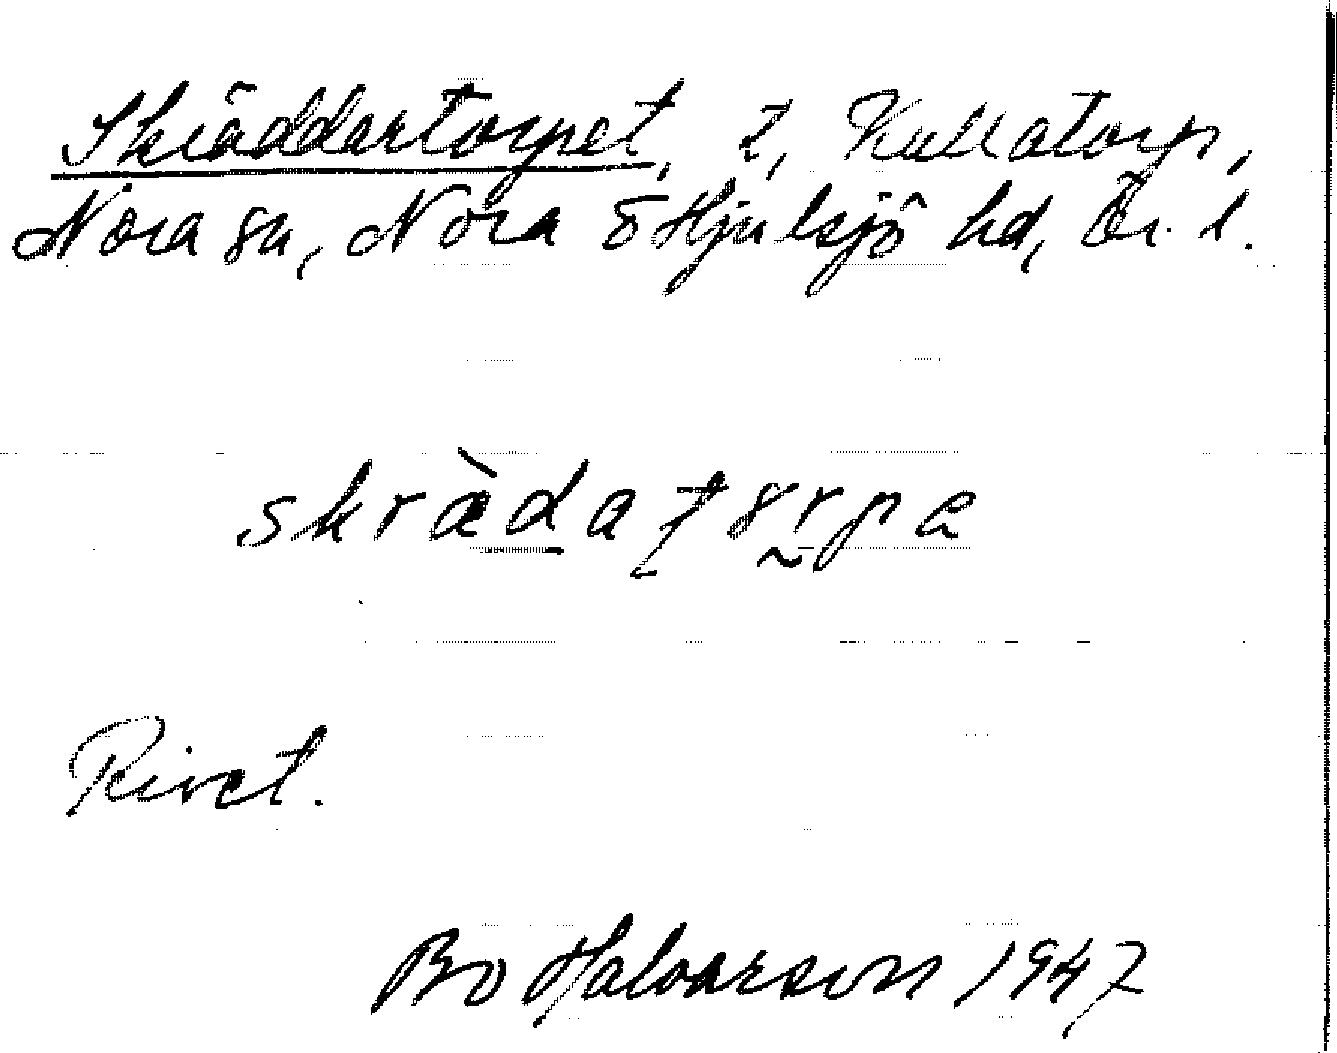 Skräddartorpet, t, Kullatorp,
Nora sn, Nora o Hjulsjö hd, Ör. l.
skrä̀daʈȣrpe
Rivet.
Bo Halvarson 1947